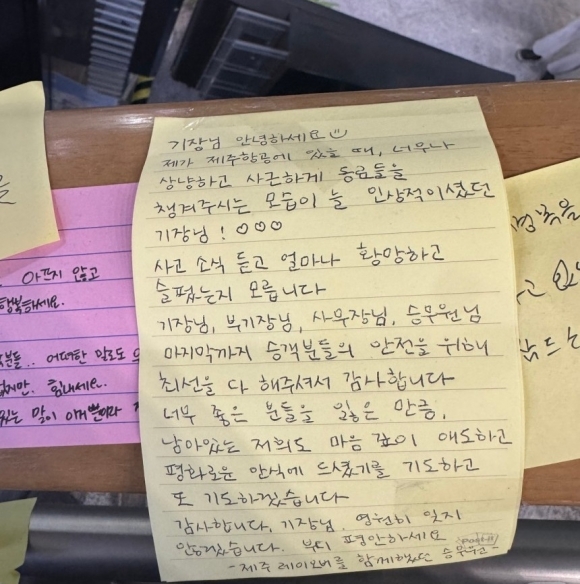 기장님 안녕하세요
제가 제주항공에 있을 때, 너무나
상냥하고 사근하게 동료들을
챙겨주시는 모습이 늘 인상적이셨던
기장님! ♡♡♡
사고 소식 듣고 얼마나 황망하고
슬펐는지 모릅니다
기장님, 부기장님, 사무장님, 승무원님
마지막까지 승객분들의 안전을 위해
최선을 다 해주셔서 감사합니다
너무 좋은 분들을 잃은 만큼,
남아있는 저희도 마음 깊이 애도하고
평화로운 안식에 드셨기를 기도하고
또 기도하겠습니다
감사합니다, 기장님. 영원히 잊지
않겠습니다. 부디 평안하세요
-제주 레이오버를 함께했던 승무원-
Post-it
아프지 않고
행복하세요.
분들.. 어떠한 말로도
없지만. 힘내세요.
있는 말이 이거뿐이라